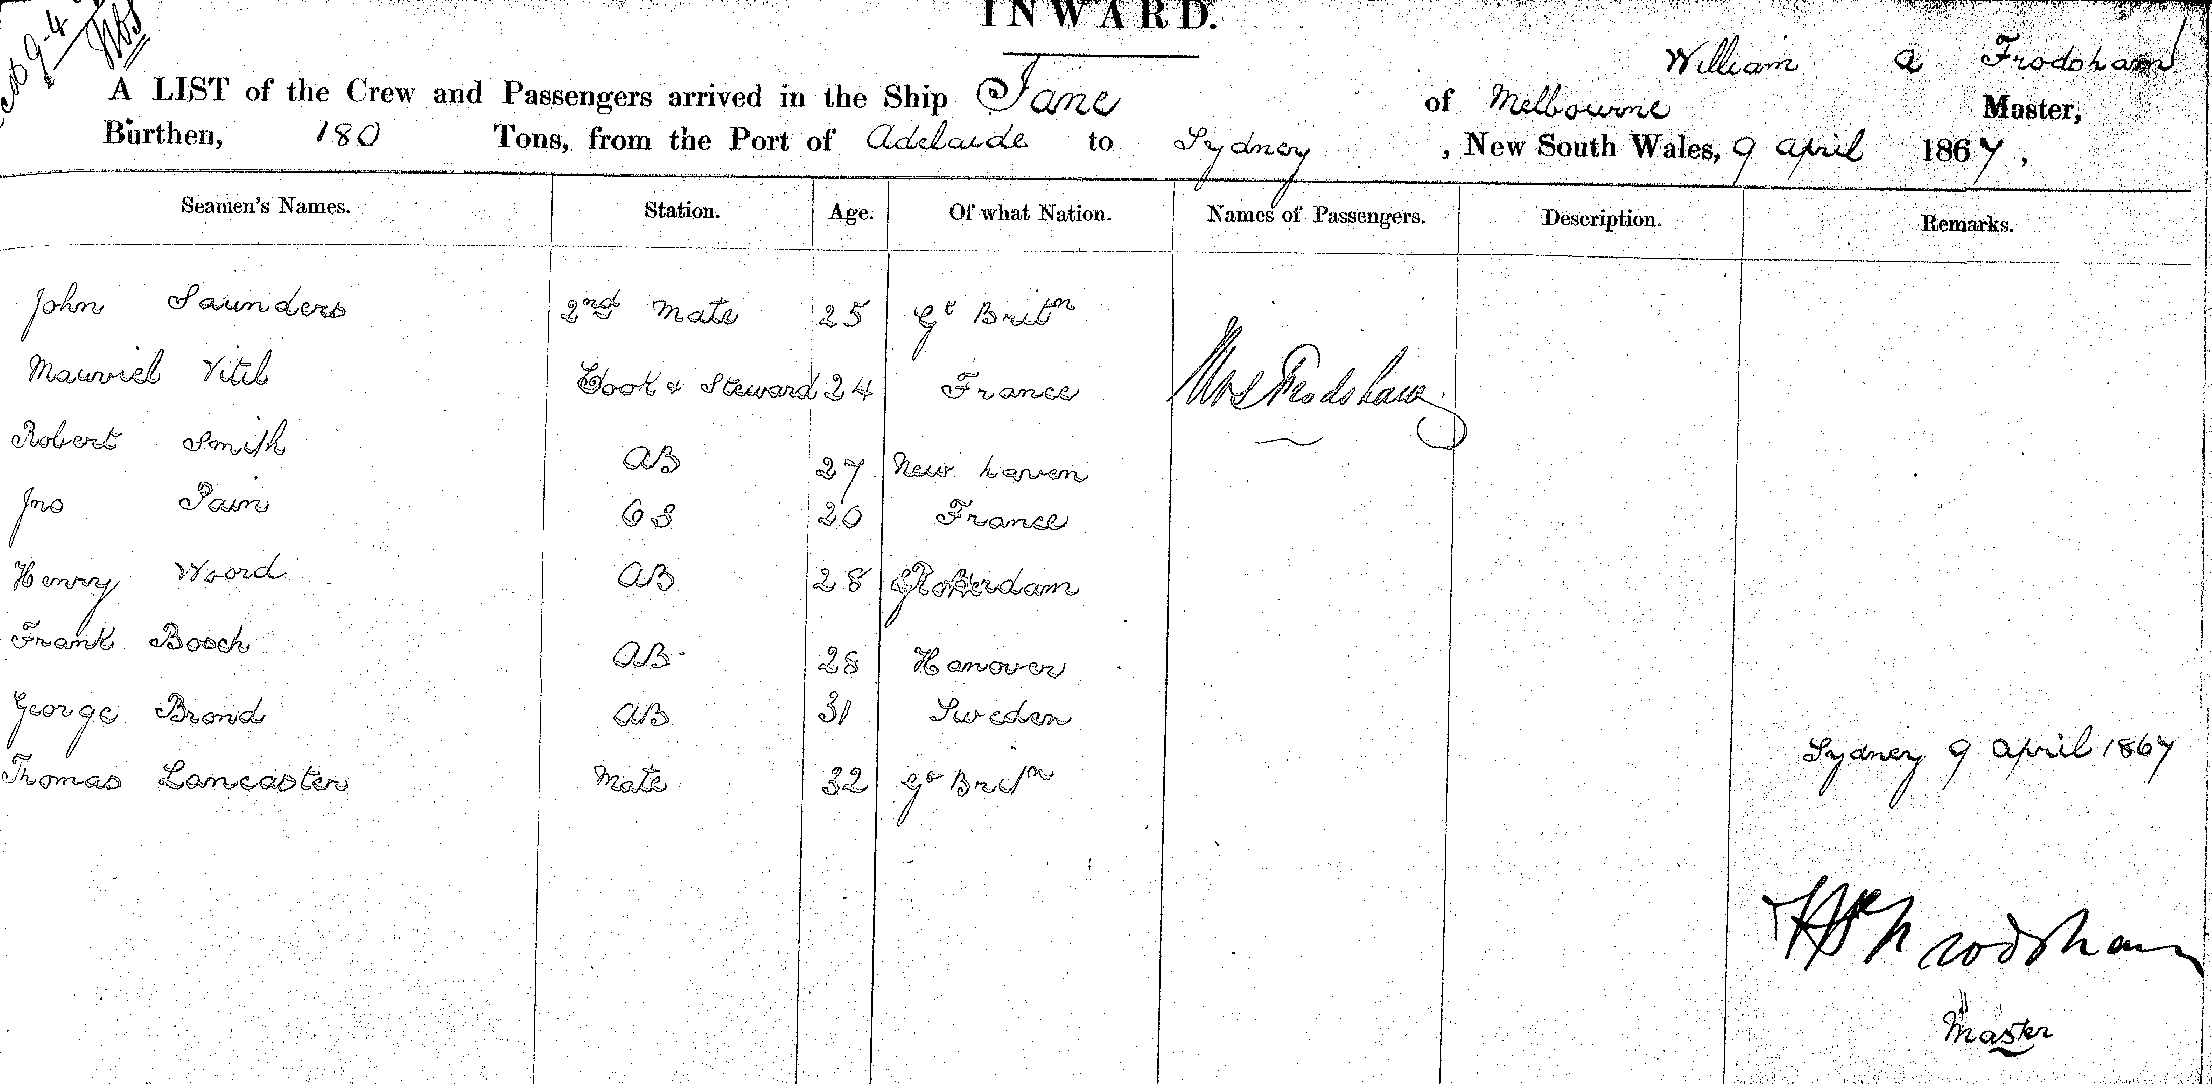 INWARD.
William a Frodsham
A LIST of the Crew and Passengers arrived in the Ship Jane of Melbourne Master,
Burthen, 180 Tons, from the Port of Adelaide to Sydney , New South Wales, 9 april 1867 ,
Seamen's Names. Station. Age. Of what Nation. Names of Passengers. Description. Remarks.
John Saunders 2nd Mate 25 Gt Britn
Mauviel Vitel Cook & Steward 24 France Mrs Frodsham
Robert Smith AB 27 New haven
Jno Pain OS 20 France
Henry Woord AB 28 Rotterdam
Frank Booch AB 28 Hanover
George Brond AB 31 Sweden
Thomas Lancaster Mate 32 Gt Britn
Sydney 9 april 1867
Frodsham
Master